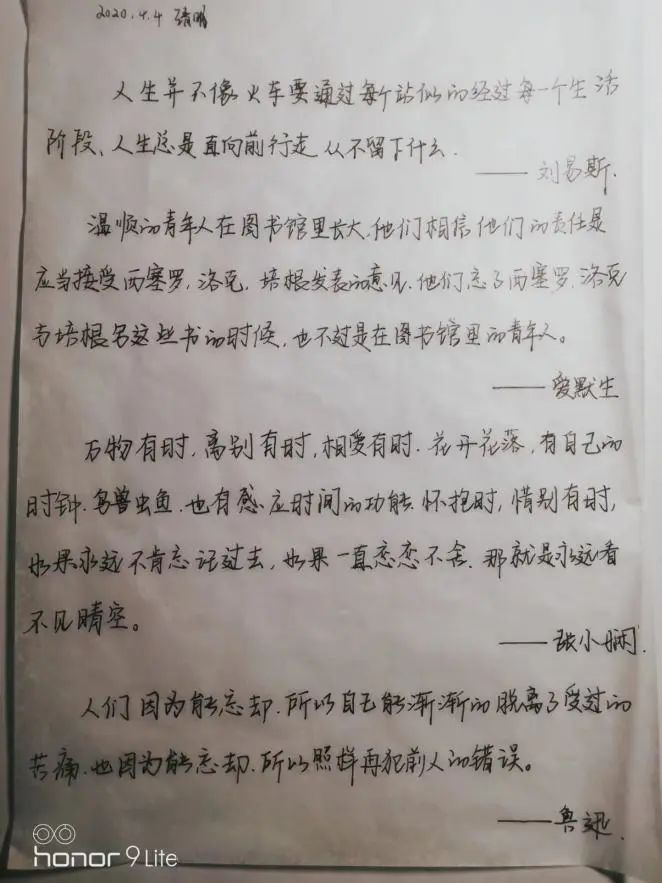 2020.4.4 清明
人生并不像火车要通过每个站似的经过每一个生活
阶段、人生总是直向前行走从不留下什么.
——刘易斯.
温顺的青年人在图书馆里长大.他们相信他们的责任是
应当接受西塞罗,洛克,培根发表的意见.他们忘了西塞罗.洛克
与培根写这些书的时候,也不过是在图书馆里的青年人。
——爱默生
万物有时,离别有时,相爱有时.花开花落,有自己的
时钟.鸟兽虫鱼.也有感应时间的功能.怀抱时,惜别有时,
如果永远不肯忘记过去,如果一直恋恋不舍.那就是永远看
不见晴空。
——张小娴.
人们因为能忘却.所以自己能渐渐的脱离了受过的
苦痛.也因为能忘却.所以照样再犯前人的错误。
——鲁迅.
honor 9 Lite